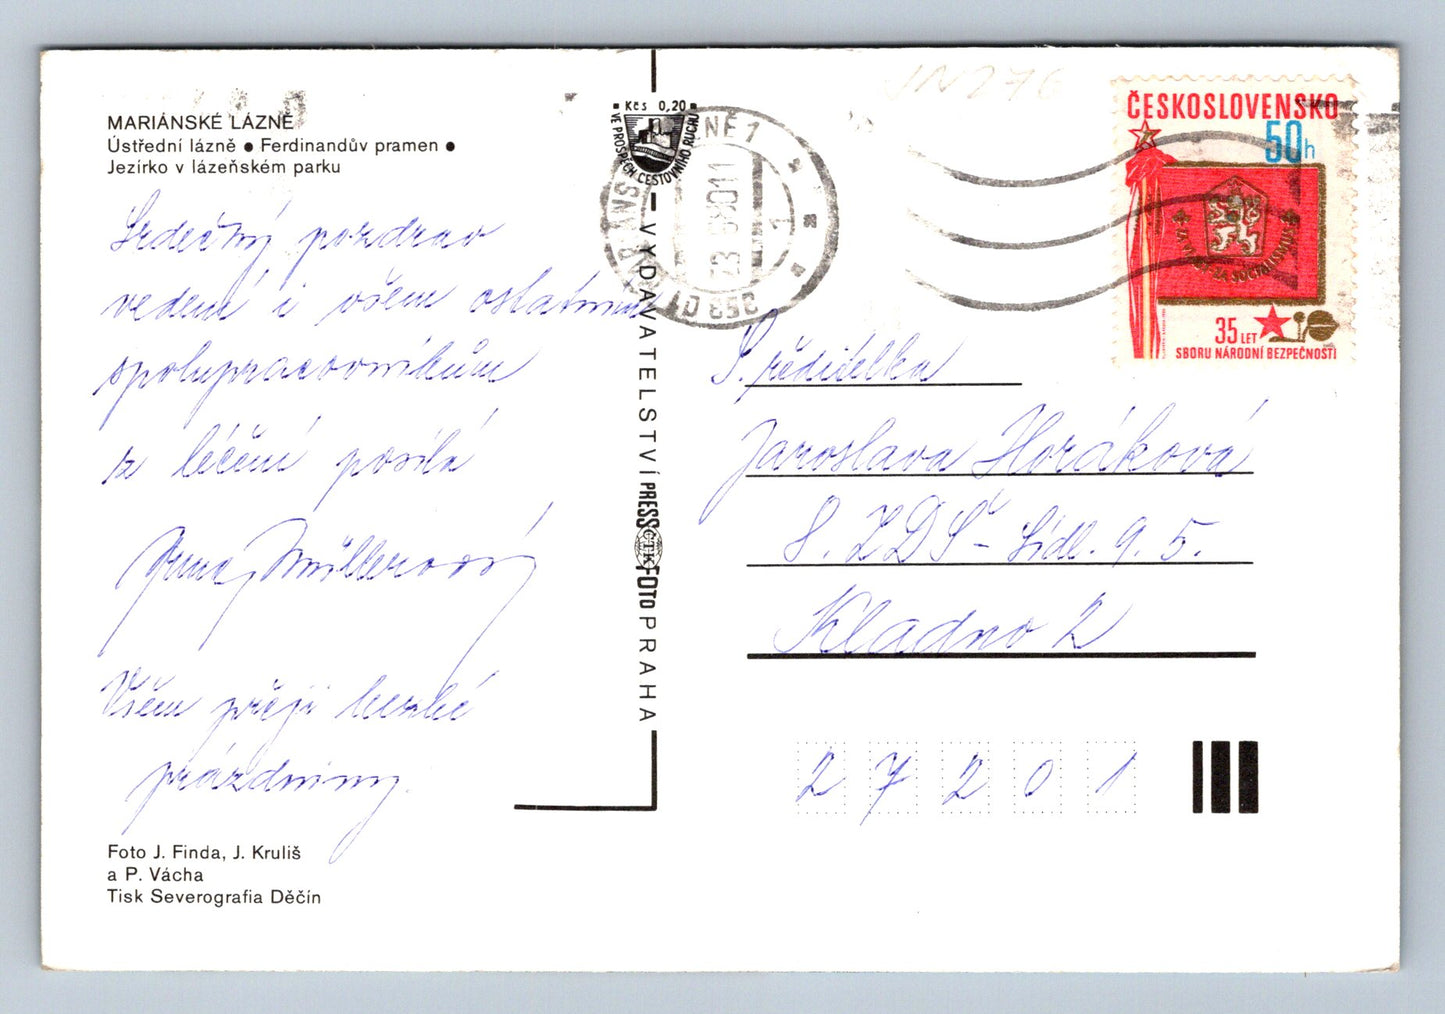 MARIÁNSKÉ LÁZNĚ
Ústřední lázně ● Ferdinandův pramen ●
Jezírko v lázeňském parku
Srdečný pozdrav
vedení i všem ostatním
spolupracovníkům
z léčení posílá
Anna Müllerová
Všem přeji hezké
prázdniny.
Foto J. Finda, J. Kruliš
a P. Vácha
Tisk Severografia Děčín
Kčs 0,20
VE PROSPĚCH CESTOVNÍHO RUCHU
VYDAVATELSTVÍ PRESSFOTO PRAHA
ČTK
ČESKOSLOVENSKO
50h
ZA VLAST ZA SOCIALISMUS
35 LET
SBORU NÁRODNÍ BEZPEČNOSTI
S. ředitelka
Jaroslava Horáková
8. ZDŠ - Sídl. 9. 5.
Kladno 2
272 01